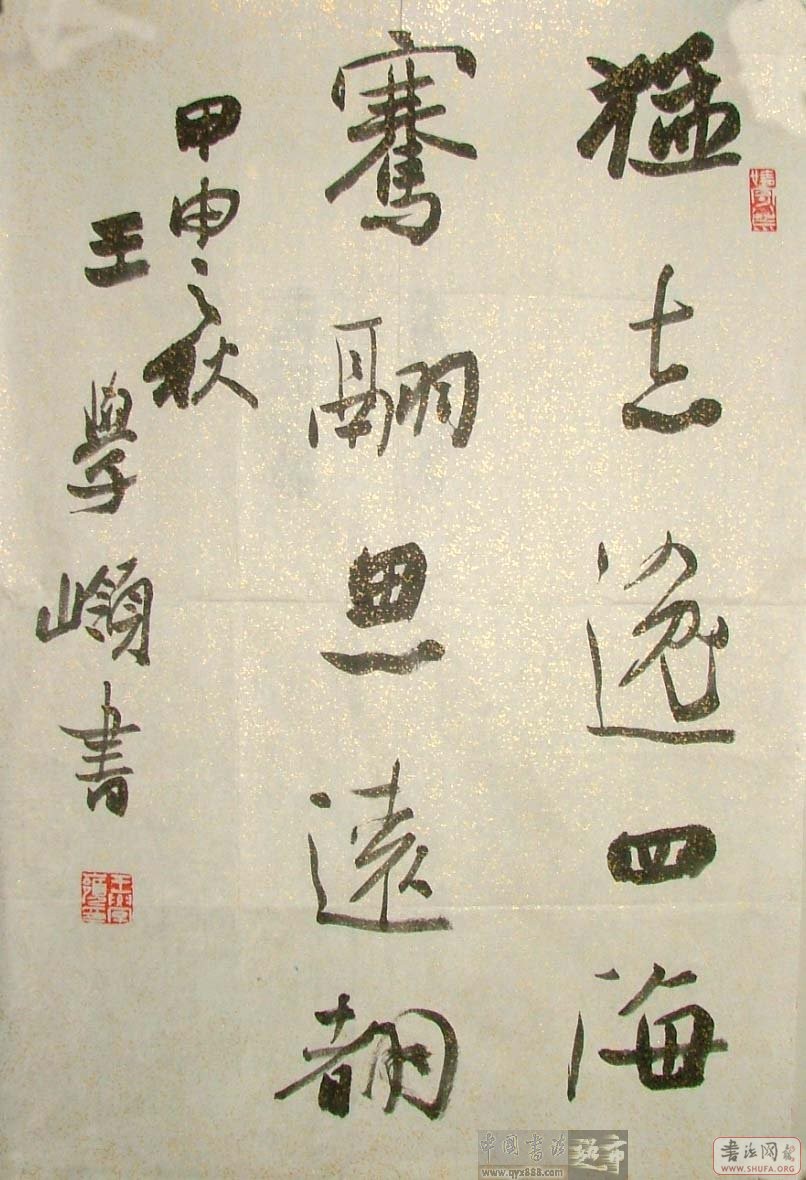 猛志逸四海
騫翮思遠翥
甲申之秋
王學嶺書
中国书法超市
www.qyx888.com
书法网
WWW.SHUFA.ORG